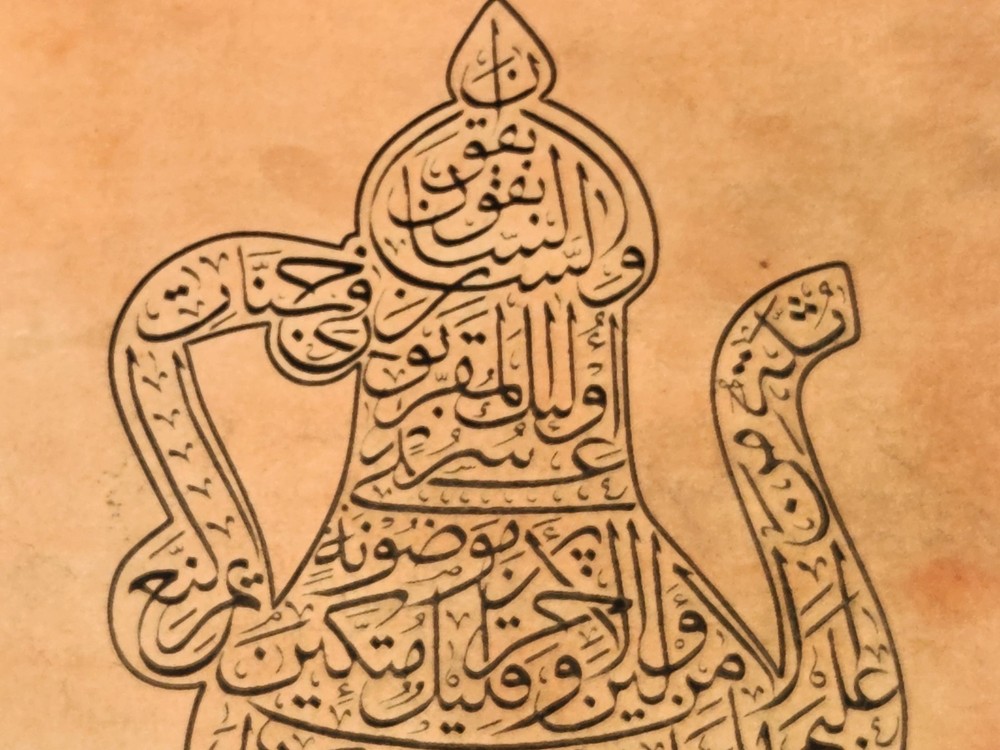 والسابقون
السابقون
أولئك المقربون
في جنات
النعيم
ثلة من
الأولين
وقليل من الآخرين
على سرر
موضونة
متكئين
عليها